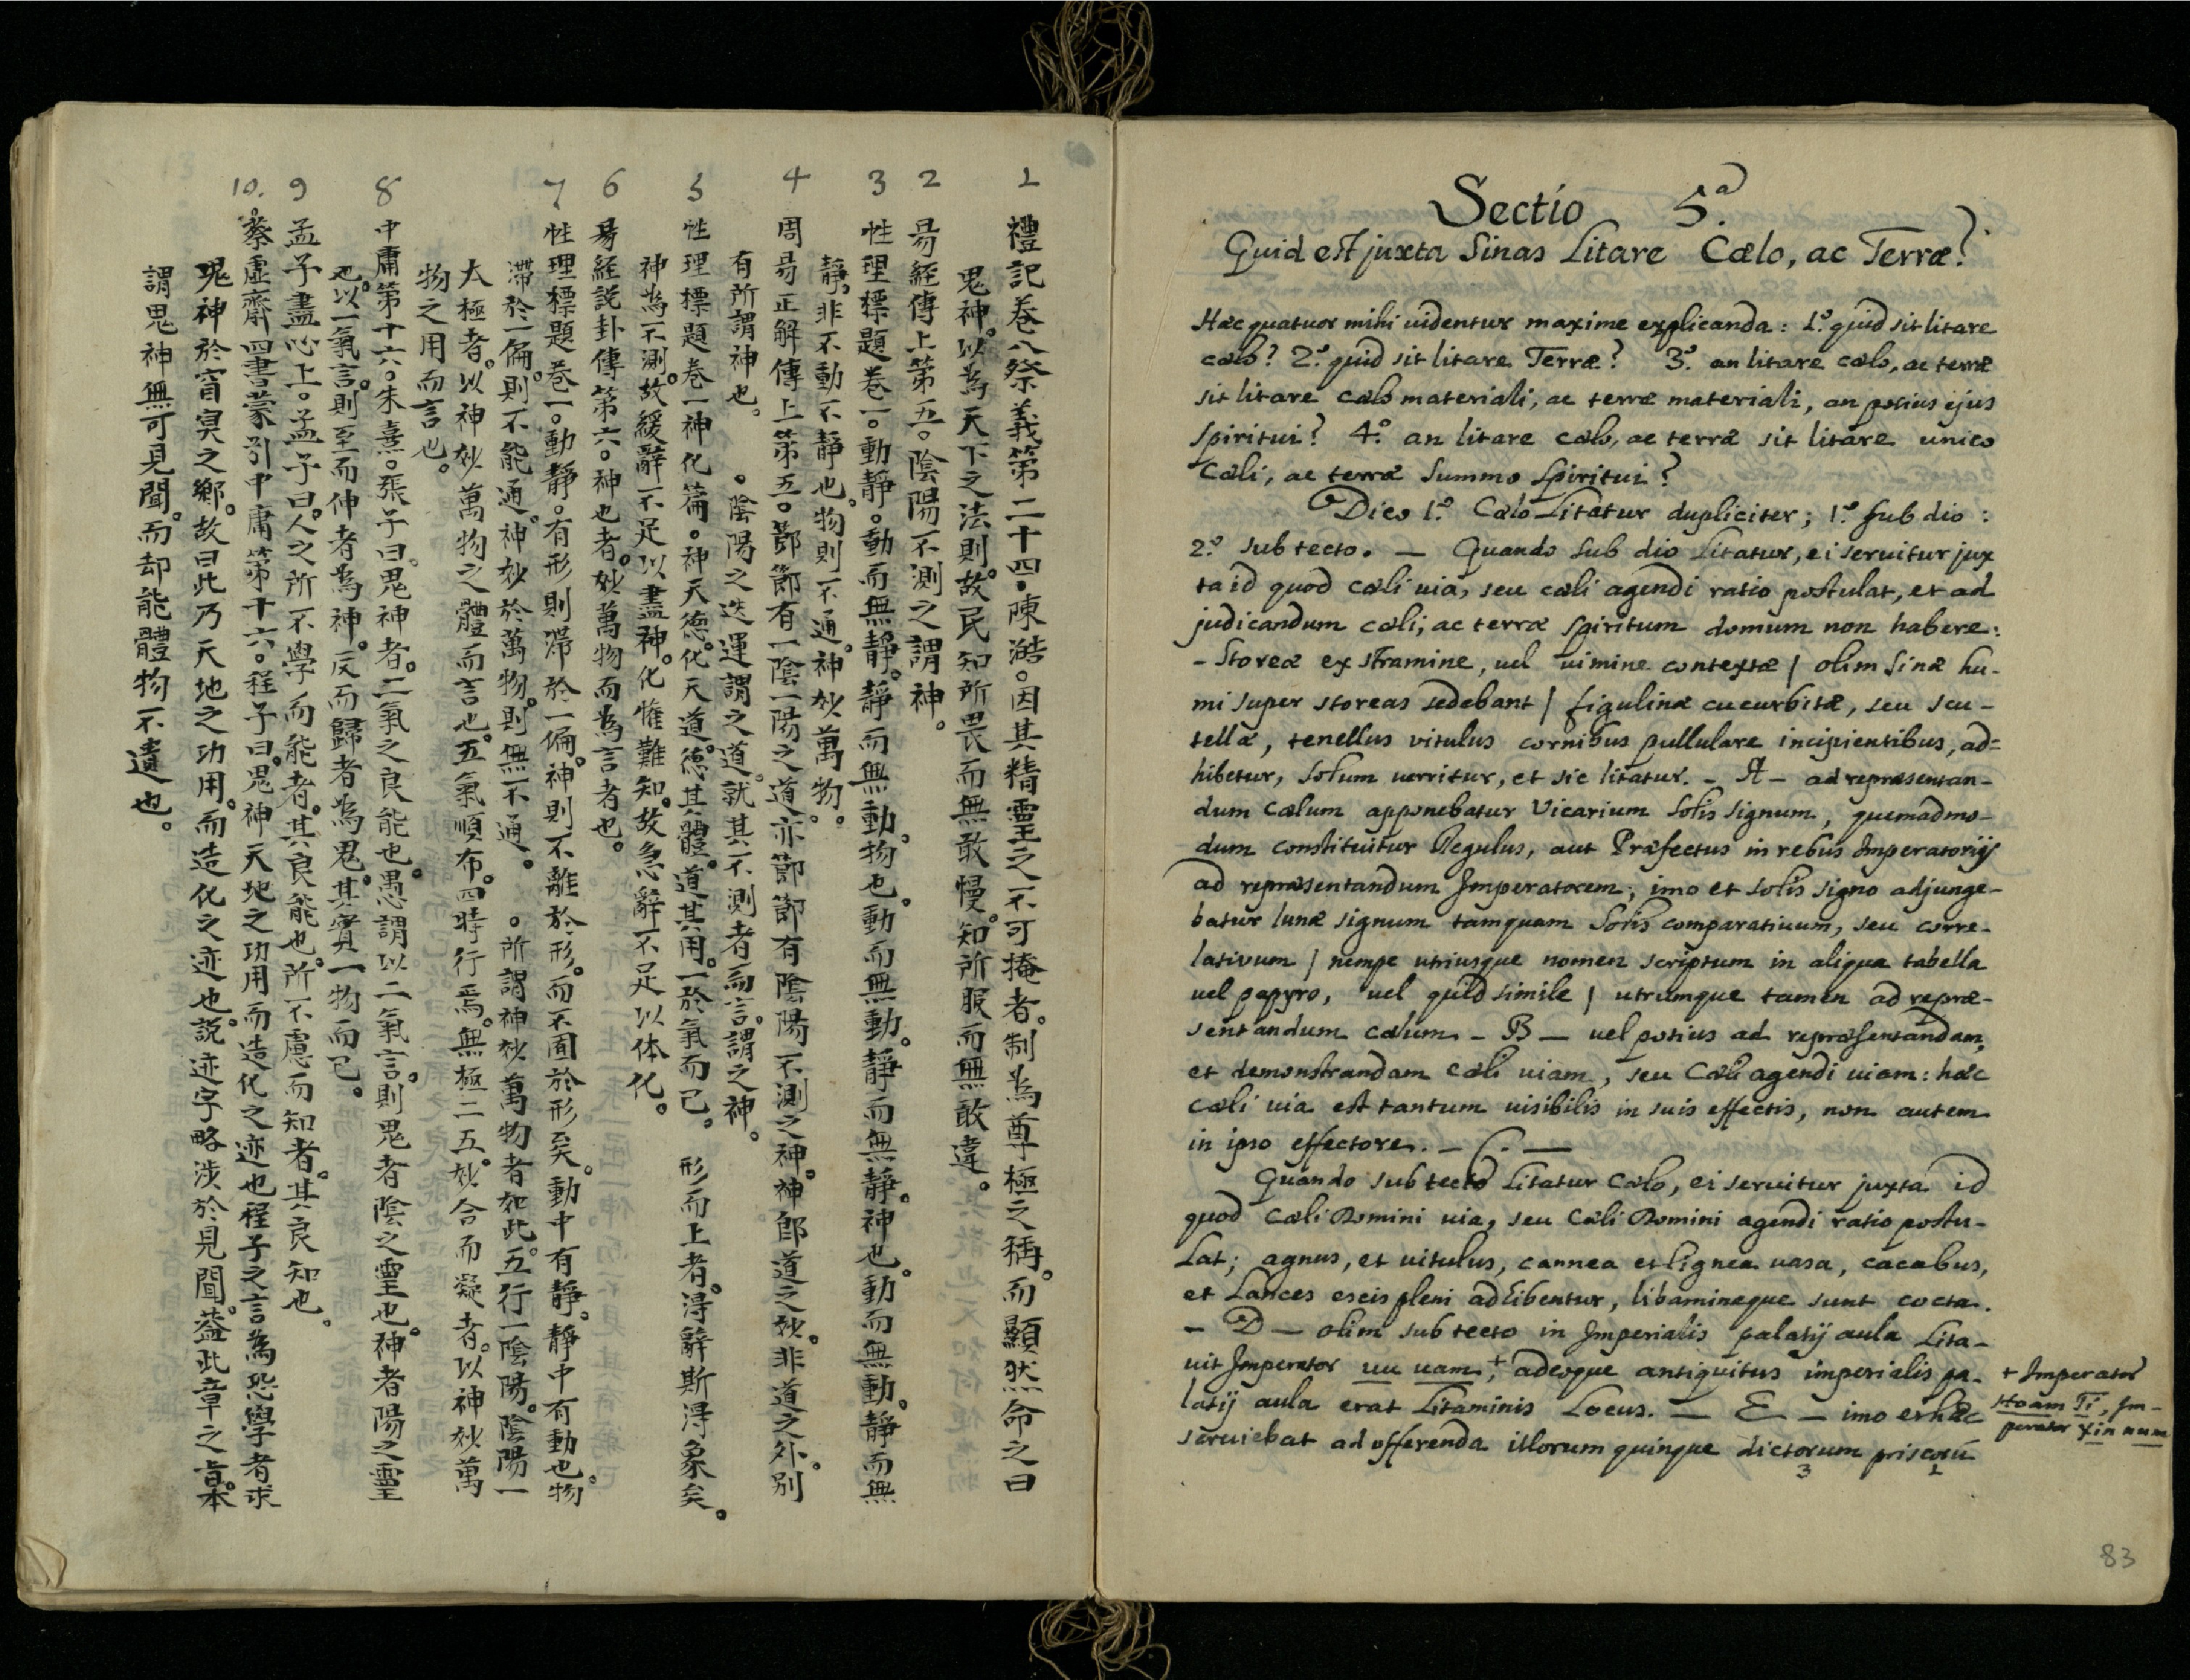 1 禮記卷八祭義第二十四。陳澔。因其精靈之不可掩者。制為尊極之稱。而顯然命之曰
鬼神。以為天下之法則。故民知所畏而無敢慢。知所服而無敢違。
2 易經傳上第五。陰陽不測之謂神。
3 性理標題卷一。動靜。動而無靜。靜而無動。物也。動而無動。靜而無靜。神也。動而無動。靜而無
靜。非不動不靜也。物則不通。神妙萬物。
4 周易正解傳上第五。節節有一陰一陽之道。亦節節有陰陽不測之神。神即道之妙。非道之外。別
有所謂神也。 。陰陽之迭運謂之道。就其不測者而言。謂之神。
5 性理標題卷一神化篇。神天德。化天道。德其體。道其用。一於氣而已。 形而上者。淂辭斯淂象矣。
神為不測。故緩辭不足以盡神。化惟難知。故急辭不足以体化。
6 易經説卦傳第六。神也者。妙萬物而為言者也。
7 性理標題卷一。動靜。有形則滯於一偏。神則不離於形。而不囿於形矣。動中有靜。靜中有動也。物
滯於一偏。則不能通。神妙於萬物。則無不通。 。所謂神妙萬物者如此。五行一陰陽。陰陽一
太極者。以神妙萬物之體而言也。五氣順布。四時行焉。無極二五。妙合而凝者。以神妙萬
物之用而言也。
8 中庸第十六。朱熹。張子曰。鬼神者。二氣之良能也。愚謂以二氣言。則鬼者陰之靈也。神者陽之靈
也。以一氣言。則至而伸者為神。反而歸者為鬼。其實一物而已。
9 孟子盡心上。孟子曰。人之所不學而能者。其良能也。所不慮而知者。其良知也。
10. 。蔡虛齋四書蒙引中庸第十六。程子曰。鬼神天地之功用而造化之迹也程子之言為恐學者求
鬼神於窅冥之鄉。故曰此乃天地之功用。而造化之迹也。説迹字略涉於見聞。葢此章之㫖。本
謂鬼神無可見聞。而却能體物不遺也。
Sectio 5.ª
Quid est juxta Sinas Litare Cœlo, ac Terræ?
Hæc quatuor mihi videntur maxime explicanda: 1.º quid sit litare
cœlo? 2.º quid sit litare Terræ? 3.º an litare cœlo, ac terræ
sit litare cœlo materiali, ac terræ materiali, an potius ejus
spiritui? 4.º an litare cœlo, ac terræ sit litare unico
Cœli, ac terræ Summo Spiritui?
Dico 1.º Cœlo Litatur dupliciter; 1.º sub dio:
2.º sub tecto. — Quando sub dio Litatur, ei seruitur jux
ta id quod cœli uia, seu cœli agendi ratio postulat, et ad
judicandum cœli, ac terræ Spiritum domum non habere:
- Storeæ ex stramine, uel uimine contextæ | olim Sinæ hu-
mi super storeas sedebant | figulinæ cucurbitæ, seu scu-
tellæ, tenellus vitulus cornibus pullulare incipientibus, ad=
hibetur, solum uerritur, et sic litatur. - A - ad repræsentan-
dum Cœlum apponebatur Vicarium Solis signum, quemadmo-
dum constituitur Regulus, aut Præfectus in rebus Imperatorijs
ad repræsentandum Imperatorem; imo et solis signo adjunge-
batur lunæ signum tamquam Solis comparatiuum, seu corre-
lativum | nempe utriusque nomen scriptum in aliqua tabella
uel papyro, uel quid simile | utrumque tamen ad repræ-
sentandum cœlum - B — uel potius ad repræsentandam,
et demonstrandam cœli uiam, seu Cœli agendi uiam: hæc
cœli uia est tantum uisibilis in suis effectis, non autem
in ipso effectore. - C. —
Quando sub tecto Litatur Cœlo, ei seruitur juxta id
quod Cœli Domini uia, seu Cœli Domini agendi ratio postu-
lat; agnus, et uitulus, cannea et lignea uasa, cacabus,
et Lances escis pleni adhibentur, libaminaque sunt cocta.
- D — olim sub tecto in Imperialis palatij aula Lita-
uit Imperator uu uam +, adeoque antiquitus imperialis pa-
latij aula erat Litaminis Locus. — E — imo et hæc
seruiebat ad offerenda illorum quinque dictorum priscorũ
3 1
+ Imperator
Hoam Ti, Im-
perator Xin num
83